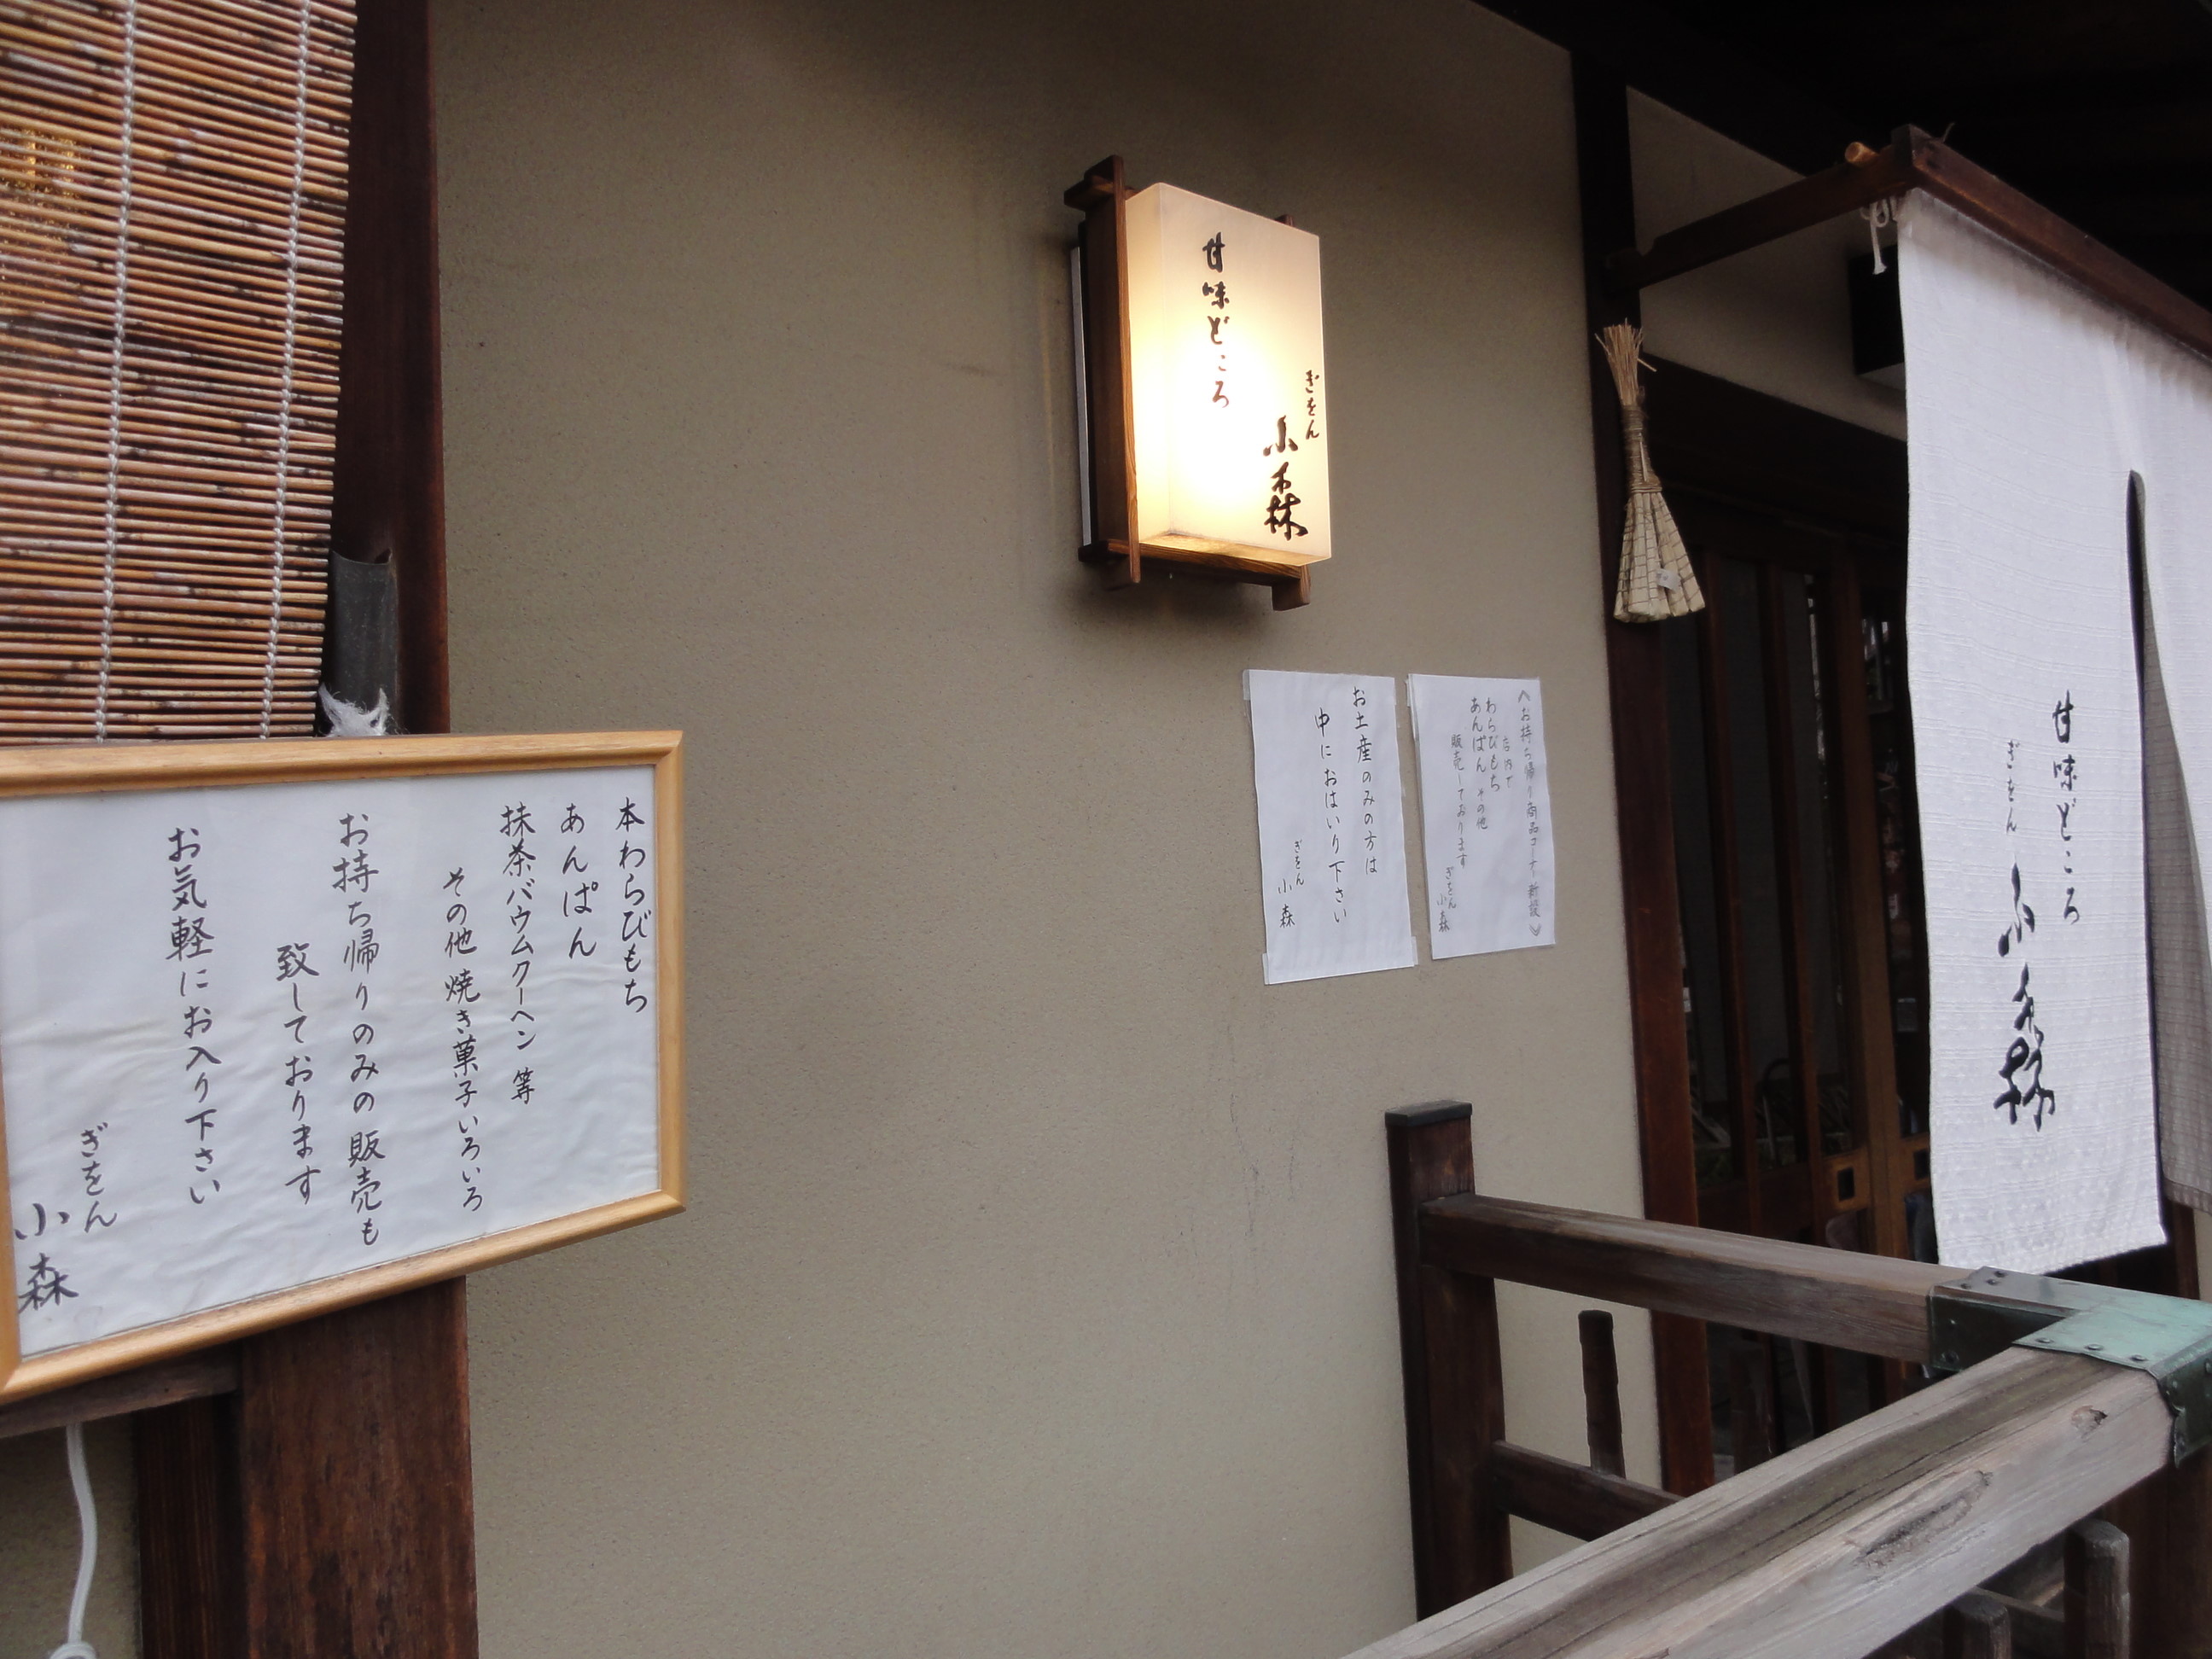 本わらびもち
あんぱん
抹茶バウムクーヘン 等
その他 焼き菓子いろいろ
お持ち帰りのみの販売も
致しております
お気軽にお入り下さい
ぎをん
小森
ぎをん
小森
甘味どころ
お土産のみの方は
中におはいり下さい
ぎをん
小森
お持ち帰り商品コーナー新設
店内で
わらびもち
あんぱん その他
販売しております
ぎをん
小森
甘味どころ
ぎをん
小森